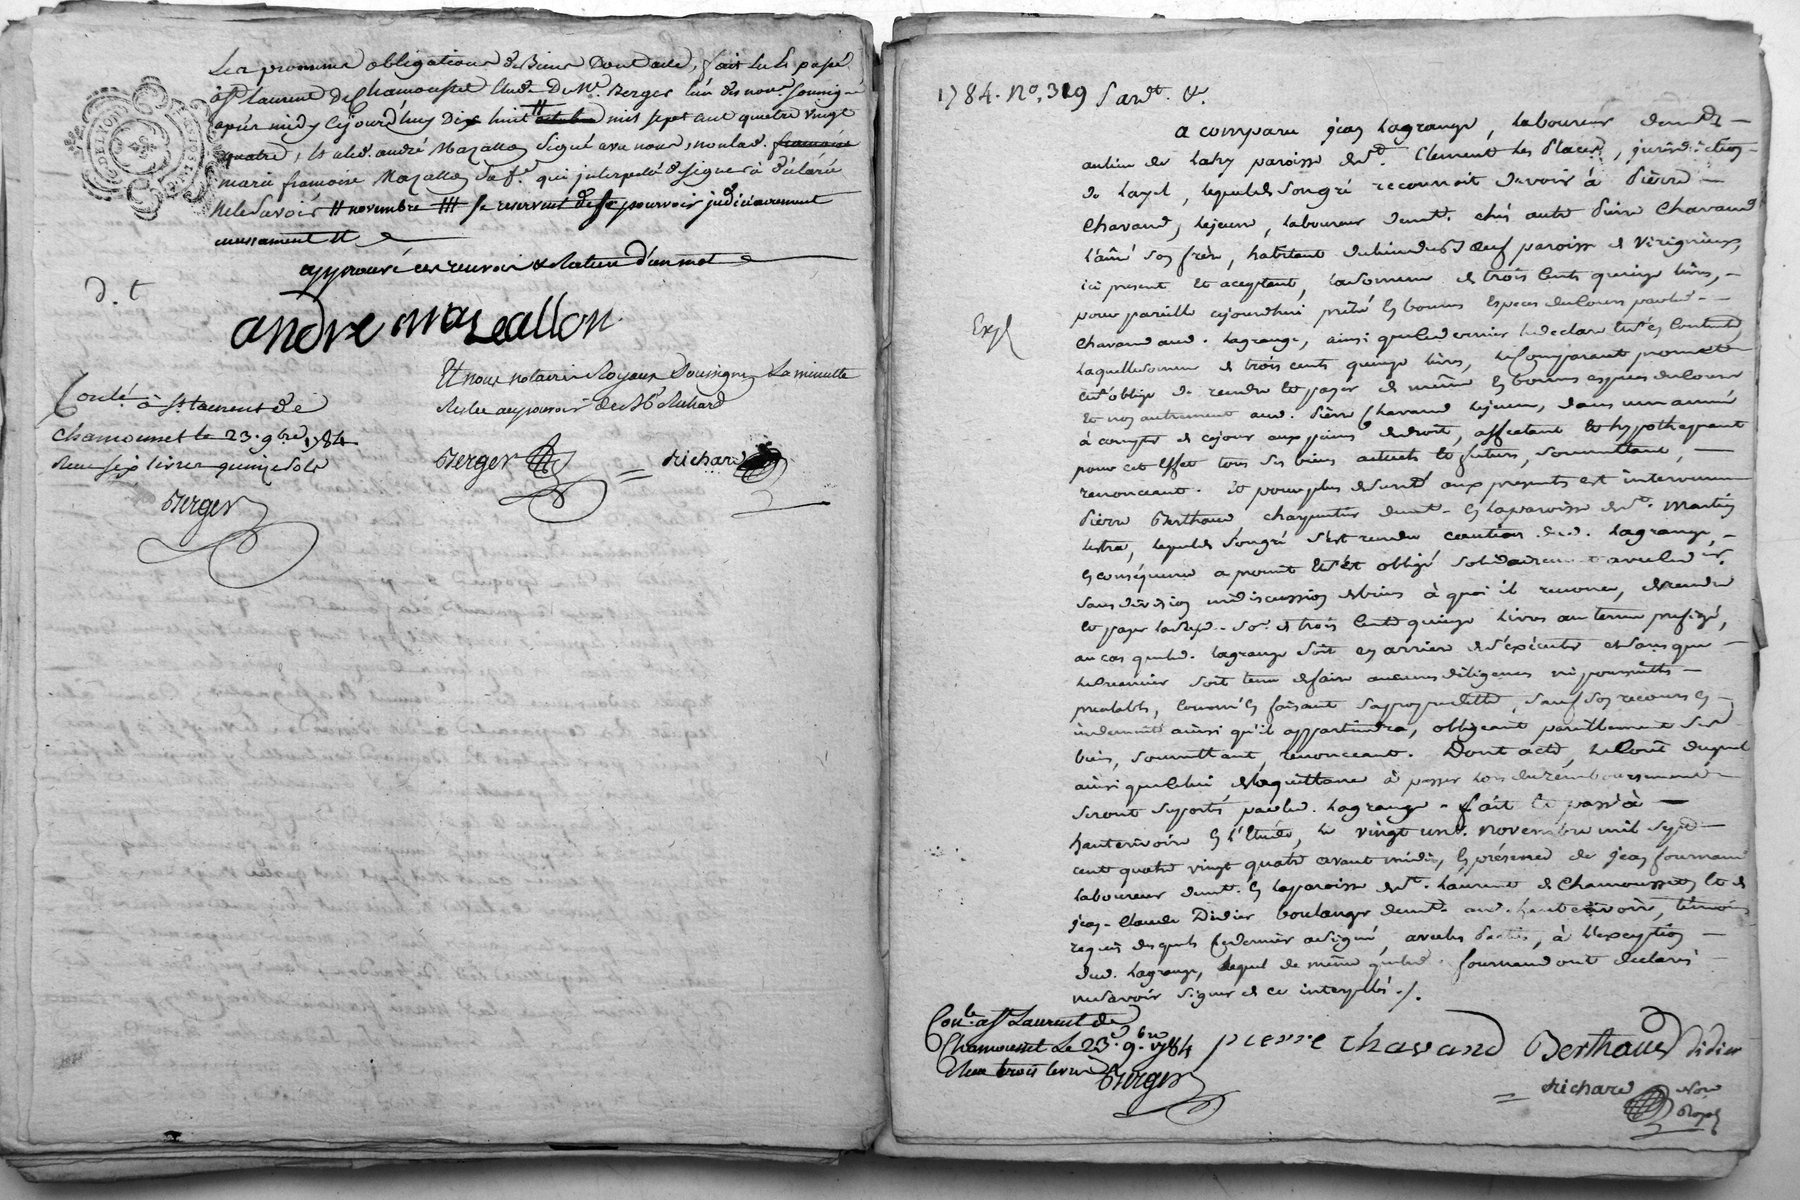 les promisses obligations de Biens Dont acte, fait lu et passé
à St Laurent De Chamousset Etude De Me. Berger l'un des nores soussignés
après midy Cejourd'huy Dix huit # octobre mil sept cent quatre vingt
quatre, et led. andré Mazallon signé avec nous, non lad. francoise
marie francoise Mazallon sa fe. qui interpelée de signer a déclaré
ne le savoir # novembre ## se reservent de se pourvoir judiciairement
incessament #
approuvé ces renvoi & rature d'un mot
d. t
andre mazeallon
Et nous notaires Royaux Soussignés La minutte
restée au pouvoir de Me Richard
Conlé à St Laurent de
Chamousset le 23. 9bre 1784
Reçu six livres quinze sols
Berger
Berger
Richard
DE LYON
1784. No. 319 Pardt. &.
a comparu jean Lagrange, Laboureur demt.
au lieu de paroisse de St. Clement les Places, jurisdiction
de Layd, lequel de son gré reconnoit devoir à Pierre
Chavand, le jeune, laboureur demt. chés autre Pierre Chavand
l'ainé son frère, habitant du lieu du paroisse de Virigneux,
ici present et aceptant, la somme de trois cents quinze livres,
pour pareille cejourdhui prété en bonnes Especes du Cours par led.
Chavand aud. Lagrange, ainsi que ce dernier le declare et s'en Contente,
Laquelle somme de trois cents quinze livres, le Comparant promet
et s'oblige de rendre et payer de même en bonnes especes du Cours
et non autrement aud. Pierre Chavand le jeune, dans une année
à compter de cejour aux peines de droit, affectant et hypothequant
pour cet Effet tous ses biens actuels et futurs, soumettant,
renonceant. Et pour plus de sureté aux presents est intervenu
Pierre Berthaud, charpentier demt. en la paroisse de St. Martin
Lestra, lequel de son gré s'est rendu caution dud. Lagrange,
en conséquence a promit et s'est obligé solidairement avec led.
sans division ni discussion de biens à quoi il renonce, de rendre
et payer lad. so. de trois Cents quinze livres au terme prefigé,
au cas que led. Lagrange soit en arriere de s'exécuter et sans que
le Creancier soit tenu de faire aucunes diligences ni poursuittes
prealables, comme en faisant sa propre dette, sauf son recours en
indemnité ainsi qu'il appartiendra, obligeant pareillement ses
biens, soumettant, renonceant. Dont acte, le Coût duquel
ainsi que celui de la quittance à passer lors du remboursement
seront suportés par led. Lagrange. fait et passé à
hauterivoire en l'Etude, le vingt un. novembre mil sept
cent quatre vingt quatre avant midi, en présence de jean fournand
laboureur demt. en la paroisse de St. Laurent de Chamousset et de
jean-Claude Didier boulanger demt. aud. hauterivoire, témoins
requis desquels ce dernier a signé, avec les Parties, à l'exception
dud. Lagrange, lequel de même que led. fournand ont declaré
ne savoir signer de ce interpellés ./.
Exp
Conlé à St Laurent de
Chamousset le 23. 9bre 1784
Reçu trois livres Berger
pierre chavand Berthaud Didier
Richard Nore
Royal